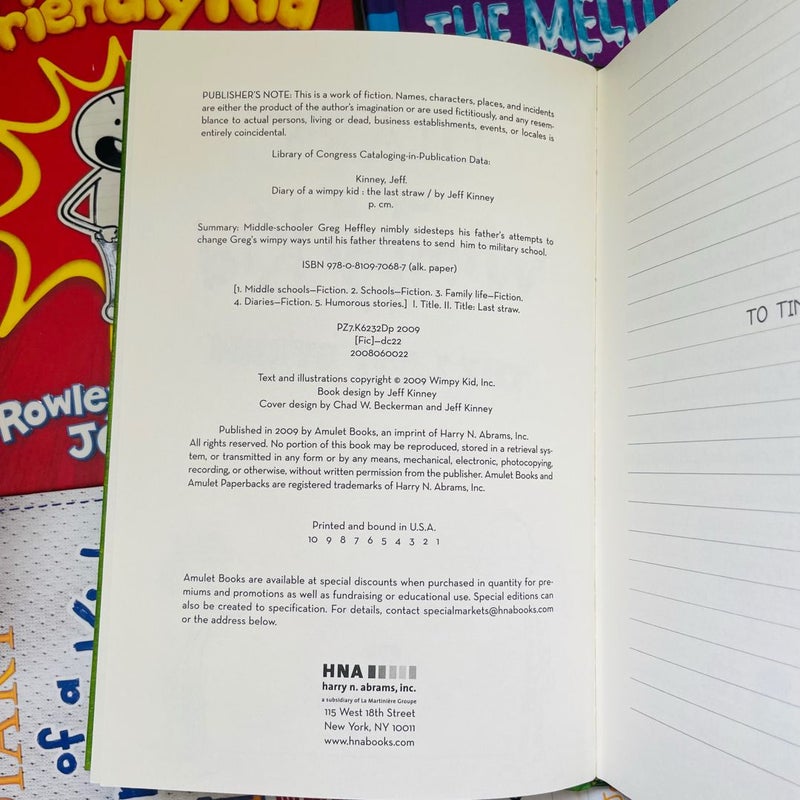 Friendly Kid
THE MEL
PUBLISHER'S NOTE: This is a work of fiction. Names, characters, places, and incidents
are either the product of the author's imagination or are used fictitiously, and any resem-
blance to actual persons, living or dead, business establishments, events, or locales is
entirely coincidental.
Library of Congress Cataloging-in-Publication Data:
Kinney, Jeff.
Diary of a wimpy kid : the last straw / by Jeff Kinney
p. cm.
Summary: Middle-schooler Greg Heffley nimbly sidesteps his father's attempts to
change Greg's wimpy ways until his father threatens to send him to military school.
ISBN 978-0-8109-7068-7 (alk. paper)
[1. Middle schools—Fiction. 2. Schools—Fiction. 3. Family life—Fiction.
4. Diaries—Fiction. 5. Humorous stories.] I. Title. II. Title: Last straw.
PZ7.K6232Dp 2009
[Fic]—dc22
2008060022
Text and illustrations copyright © 2009 Wimpy Kid, Inc.
Book design by Jeff Kinney
Cover design by Chad W. Beckerman and Jeff Kinney
Published in 2009 by Amulet Books, an imprint of Harry N. Abrams, Inc.
All rights reserved. No portion of this book may be reproduced, stored in a retrieval sys-
tem, or transmitted in any form or by any means, mechanical, electronic, photocopying,
recording, or otherwise, without written permission from the publisher. Amulet Books and
Amulet Paperbacks are registered trademarks of Harry N. Abrams, Inc.
Printed and bound in U.S.A.
10 9 8 7 6 5 4 3 2 1
Amulet Books are available at special discounts when purchased in quantity for pre-
miums and promotions as well as fundraising or educational use. Special editions can
also be created to specification. For details, contact specialmarkets@hnabooks.com
or the address below.
HNA
harry n. abrams, inc.
a subsidiary of La Martinière Groupe
115 West 18th Street
New York, NY 10011
www.hnabooks.com
TO TI
Rowle
J
of a